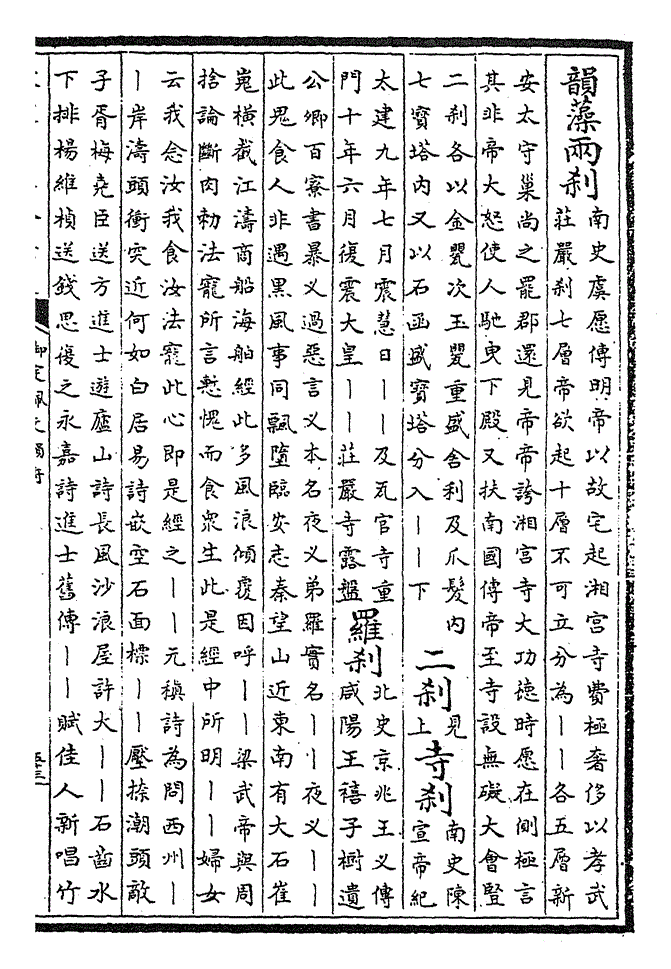 韻藻兩刹
南史虞愿傳明帝以故宅起湘宮寺費極奢侈以孝武
莊嚴刹七層帝欲起十層不可立分為丨丨各五層新
安太守巢尚之罷郡還見帝帝誇湘宮寺大功徳時愿在側極言
其非帝大怒使人馳曳下殿又扶南國傳帝至寺設無礙大會豎
二刹各以金甖次玉甖重盛舍利及爪髮内
七寶塔内又以石函盛寶塔分入丨丨下
二刹
見
上
寺刹
南史陳
宣帝紀
太建九年七月震慧日丨丨及瓦官寺重
門十年六月復震大皇丨丨莊嚴寺露盤
羅刹
北史京兆王乂傳
咸陽王禧子樹遺
公卿百寮書暴乂過惡言乂本名夜乂弟羅實名丨丨夜乂丨丨
此鬼食人非遇黑風事同飄墮臨安志秦望山近東南有大石崔
嵬橫截江濤商船海舶經此多風浪傾覆因呼丨丨梁武帝與周
捨論斷肉勅法寵所言慙愧而食衆生此是經中所明丨丨婦女
云我念汝我食汝法寵此心即是經之丨丨元稹詩為問西州丨
丨岸濤頭衝突近何如白居易詩嵌空石面標丨丨壓捺潮頭敵
子胥梅堯臣送方進士遊廬山詩長風沙浪屋許大丨丨石齒水
下排楊維楨送錢思復之永嘉詩進士舊傳丨丨賦佳人新唱竹
御定佩文韻府